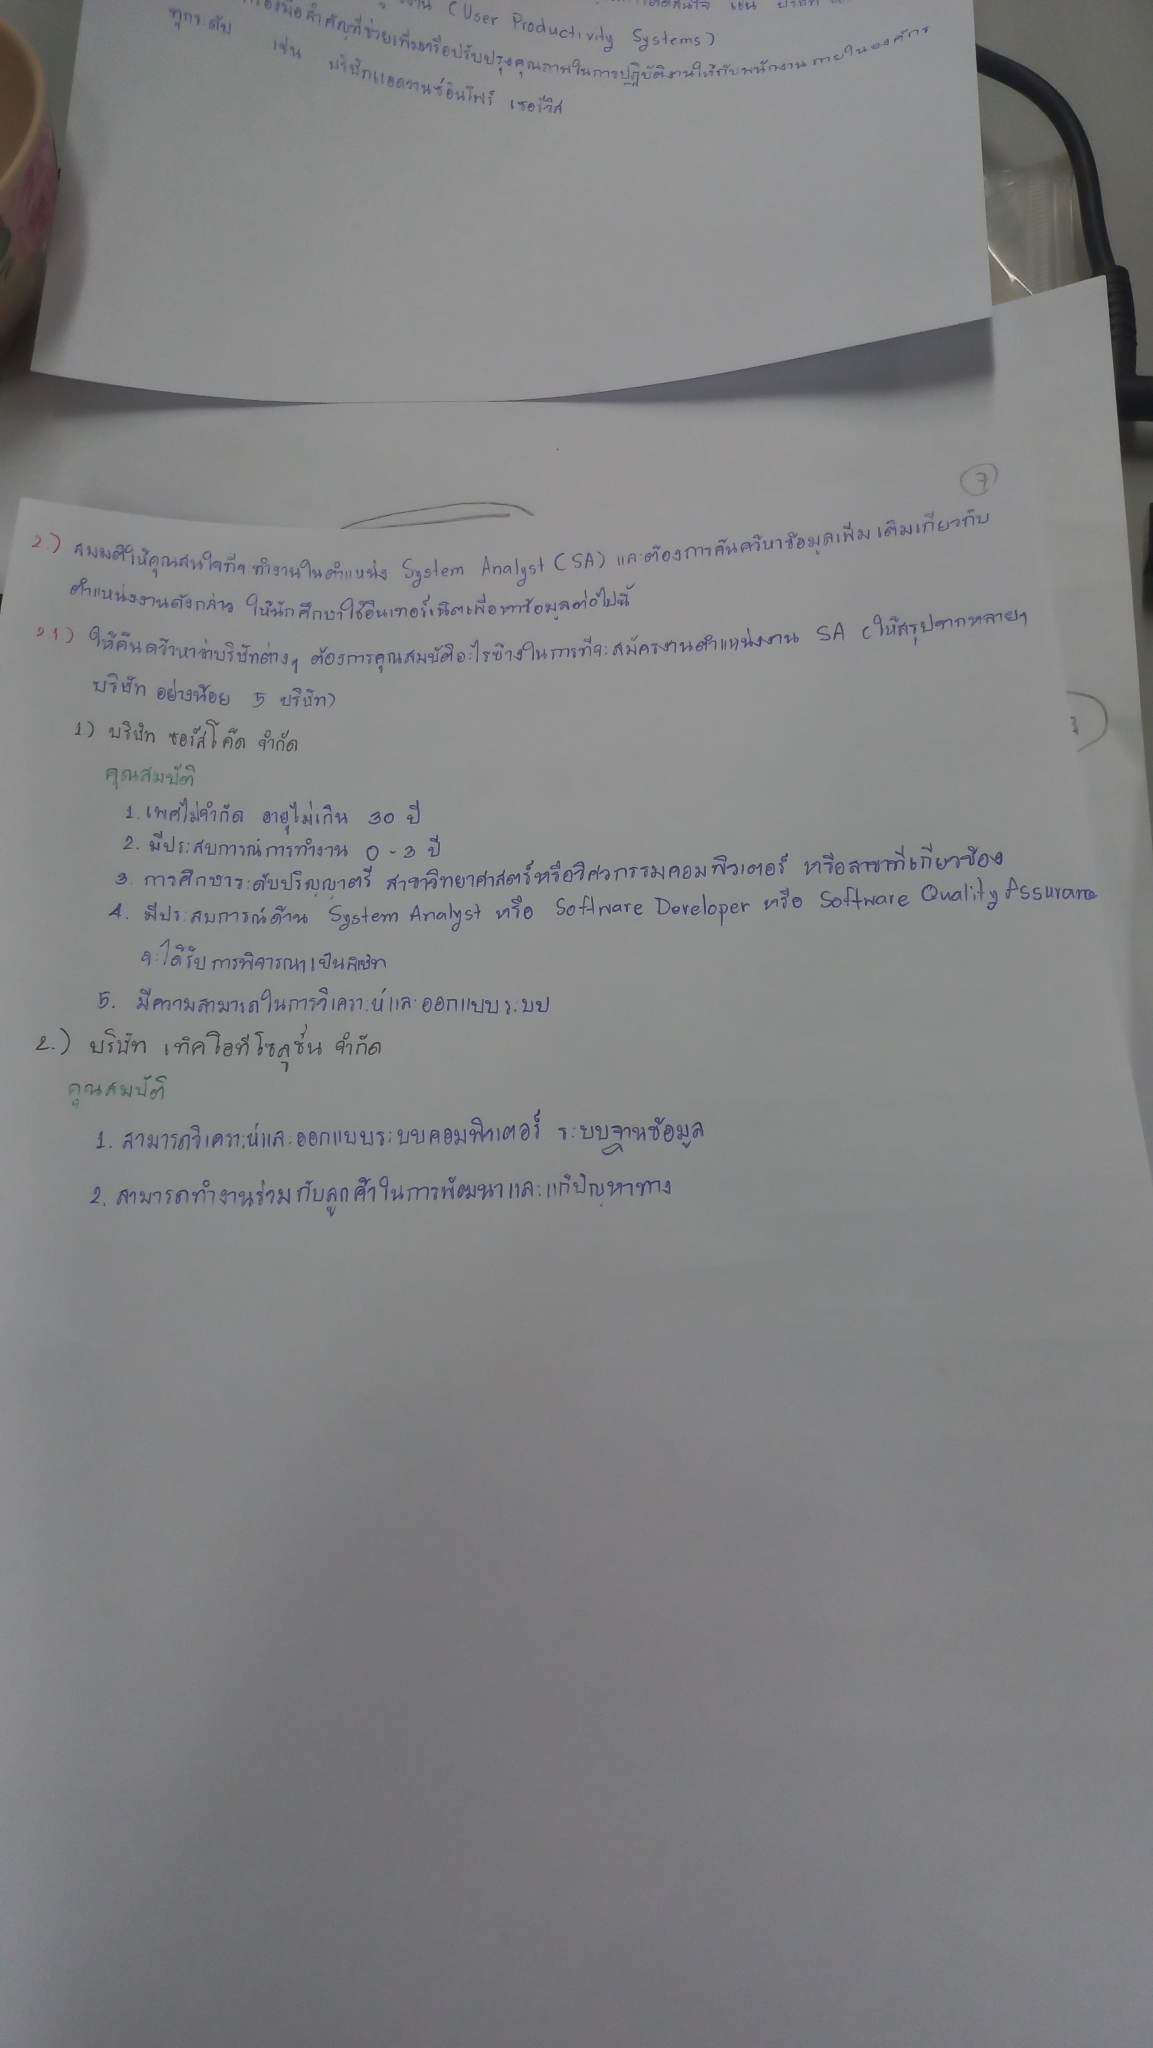 งาน (User Productivity Systems)
สำคัญที่ช่วยเพิ่มหรือปรับปรุงคุณภาพในการปฏิบัติงานให้กับพนักงานภายในองค์การ
ทุกระดับ เช่น บริษัทแอดวานซ์อินโฟร์ เซอร์วิส
7
2.) สมมติให้คุณสนใจที่จะทำงานในตำแหน่ง System Analyst (SA) และต้องการค้นคว้าหาข้อมูลเพิ่มเติมเกี่ยวกับ
ตำแหน่งงานดังกล่าว ให้นักศึกษาใช้อินเทอร์เน็ตเพื่อหาข้อมูลต่อไปนี้
2.1) ให้ค้นคว้าหาว่าบริษัทต่างๆ ต้องการคุณสมบัติอะไรบ้างในการที่จะสมัครงานตำแหน่งงาน SA (ให้สรุปจากหลายๆ
บริษัท อย่างน้อย 5 บริษัท)
1) บริษัท ซอร์สโค๊ด จำกัด
คุณสมบัติ
1. เพศไม่จำกัด อายุไม่เกิน 30 ปี
2. มีประสบการณ์การทำงาน 0-3 ปี
3. การศึกษาระดับปริญญาตรี สาขาวิทยาศาสตร์หรือวิศวกรรมคอมพิวเตอร์ หรือสาขาที่เกี่ยวข้อง
4. มีประสบการณ์ด้าน System Analyst หรือ Software Developer หรือ Software Quality Assurance
จะได้รับการพิจารณาเป็นพิเศษ
5. มีความสามารถในการวิเคราะห์และออกแบบระบบ
2.) บริษัท เทิคไอทีโซลูชั่น จำกัด
คุณสมบัติ
1. สามารถวิเคราะห์และออกแบบระบบคอมพิวเตอร์ ระบบฐานข้อมูล
2. สามารถทำงานร่วมกับลูกค้าในการพัฒนาและแก้ปัญหาทาง